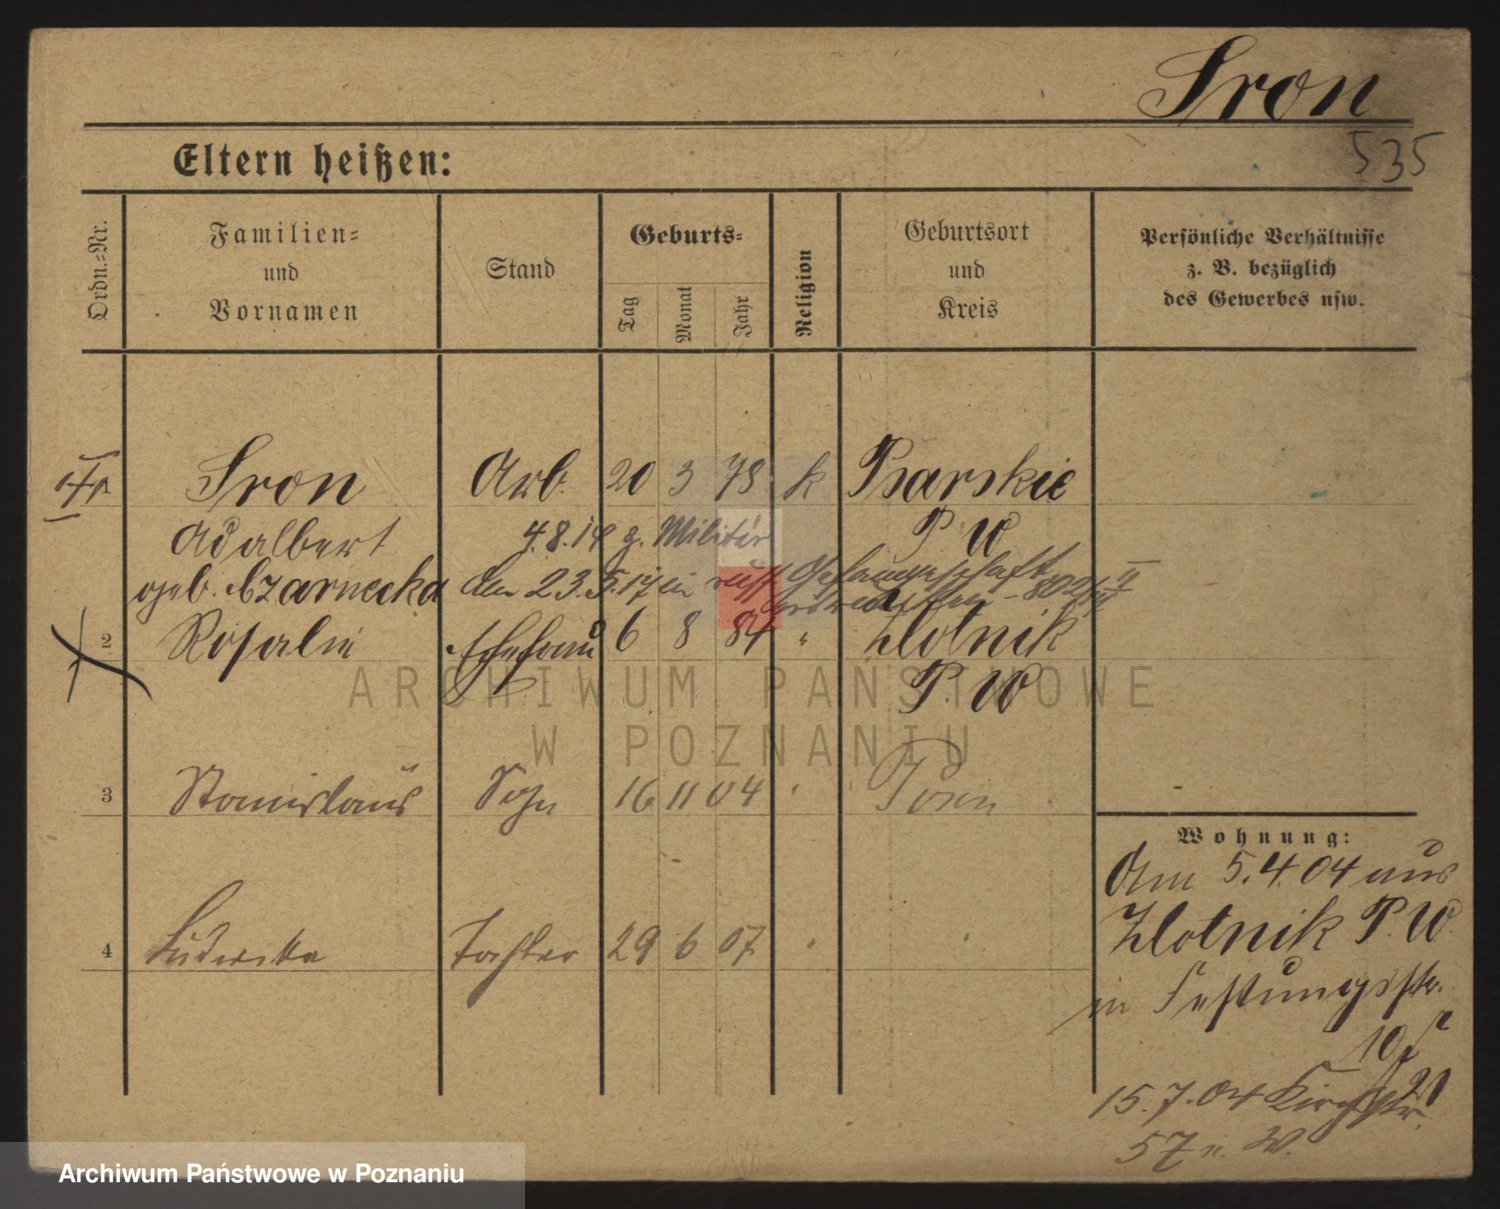 Sron
535
Eltern heißen:
Ordn.-Nr.
Familien- und Vornamen
Stand
Geburts-
Tag
Monat
Jahr
Religion
Geburtsort und Kreis
Persönliche Verhältnisse z. B. bezüglich des Gewerbes usw.
Sron Arb. 20 3 78 k Psarskie
Adalbert 4.8.14 z. Militär P. W
geb. Czarnecka den 23.5.17 in russ. Gefangenschaft
2 Rosalie Ehefrau 6 8 84 " Zlotnik
P. W
3 Stanislaus Sohn 16 11 04 " Posen
4 Ludwika Tochter 29 6 07 " "
Wohnung:
Am 5.4.04 aus
Zlotnik P. W.
in Festungsstr.
10
15.7.04 Kirchstr. 21
57 n. W.
ARCHIWUM PAŃSTWOWE
W POZNANIU
Archiwum Państwowe w Poznaniu